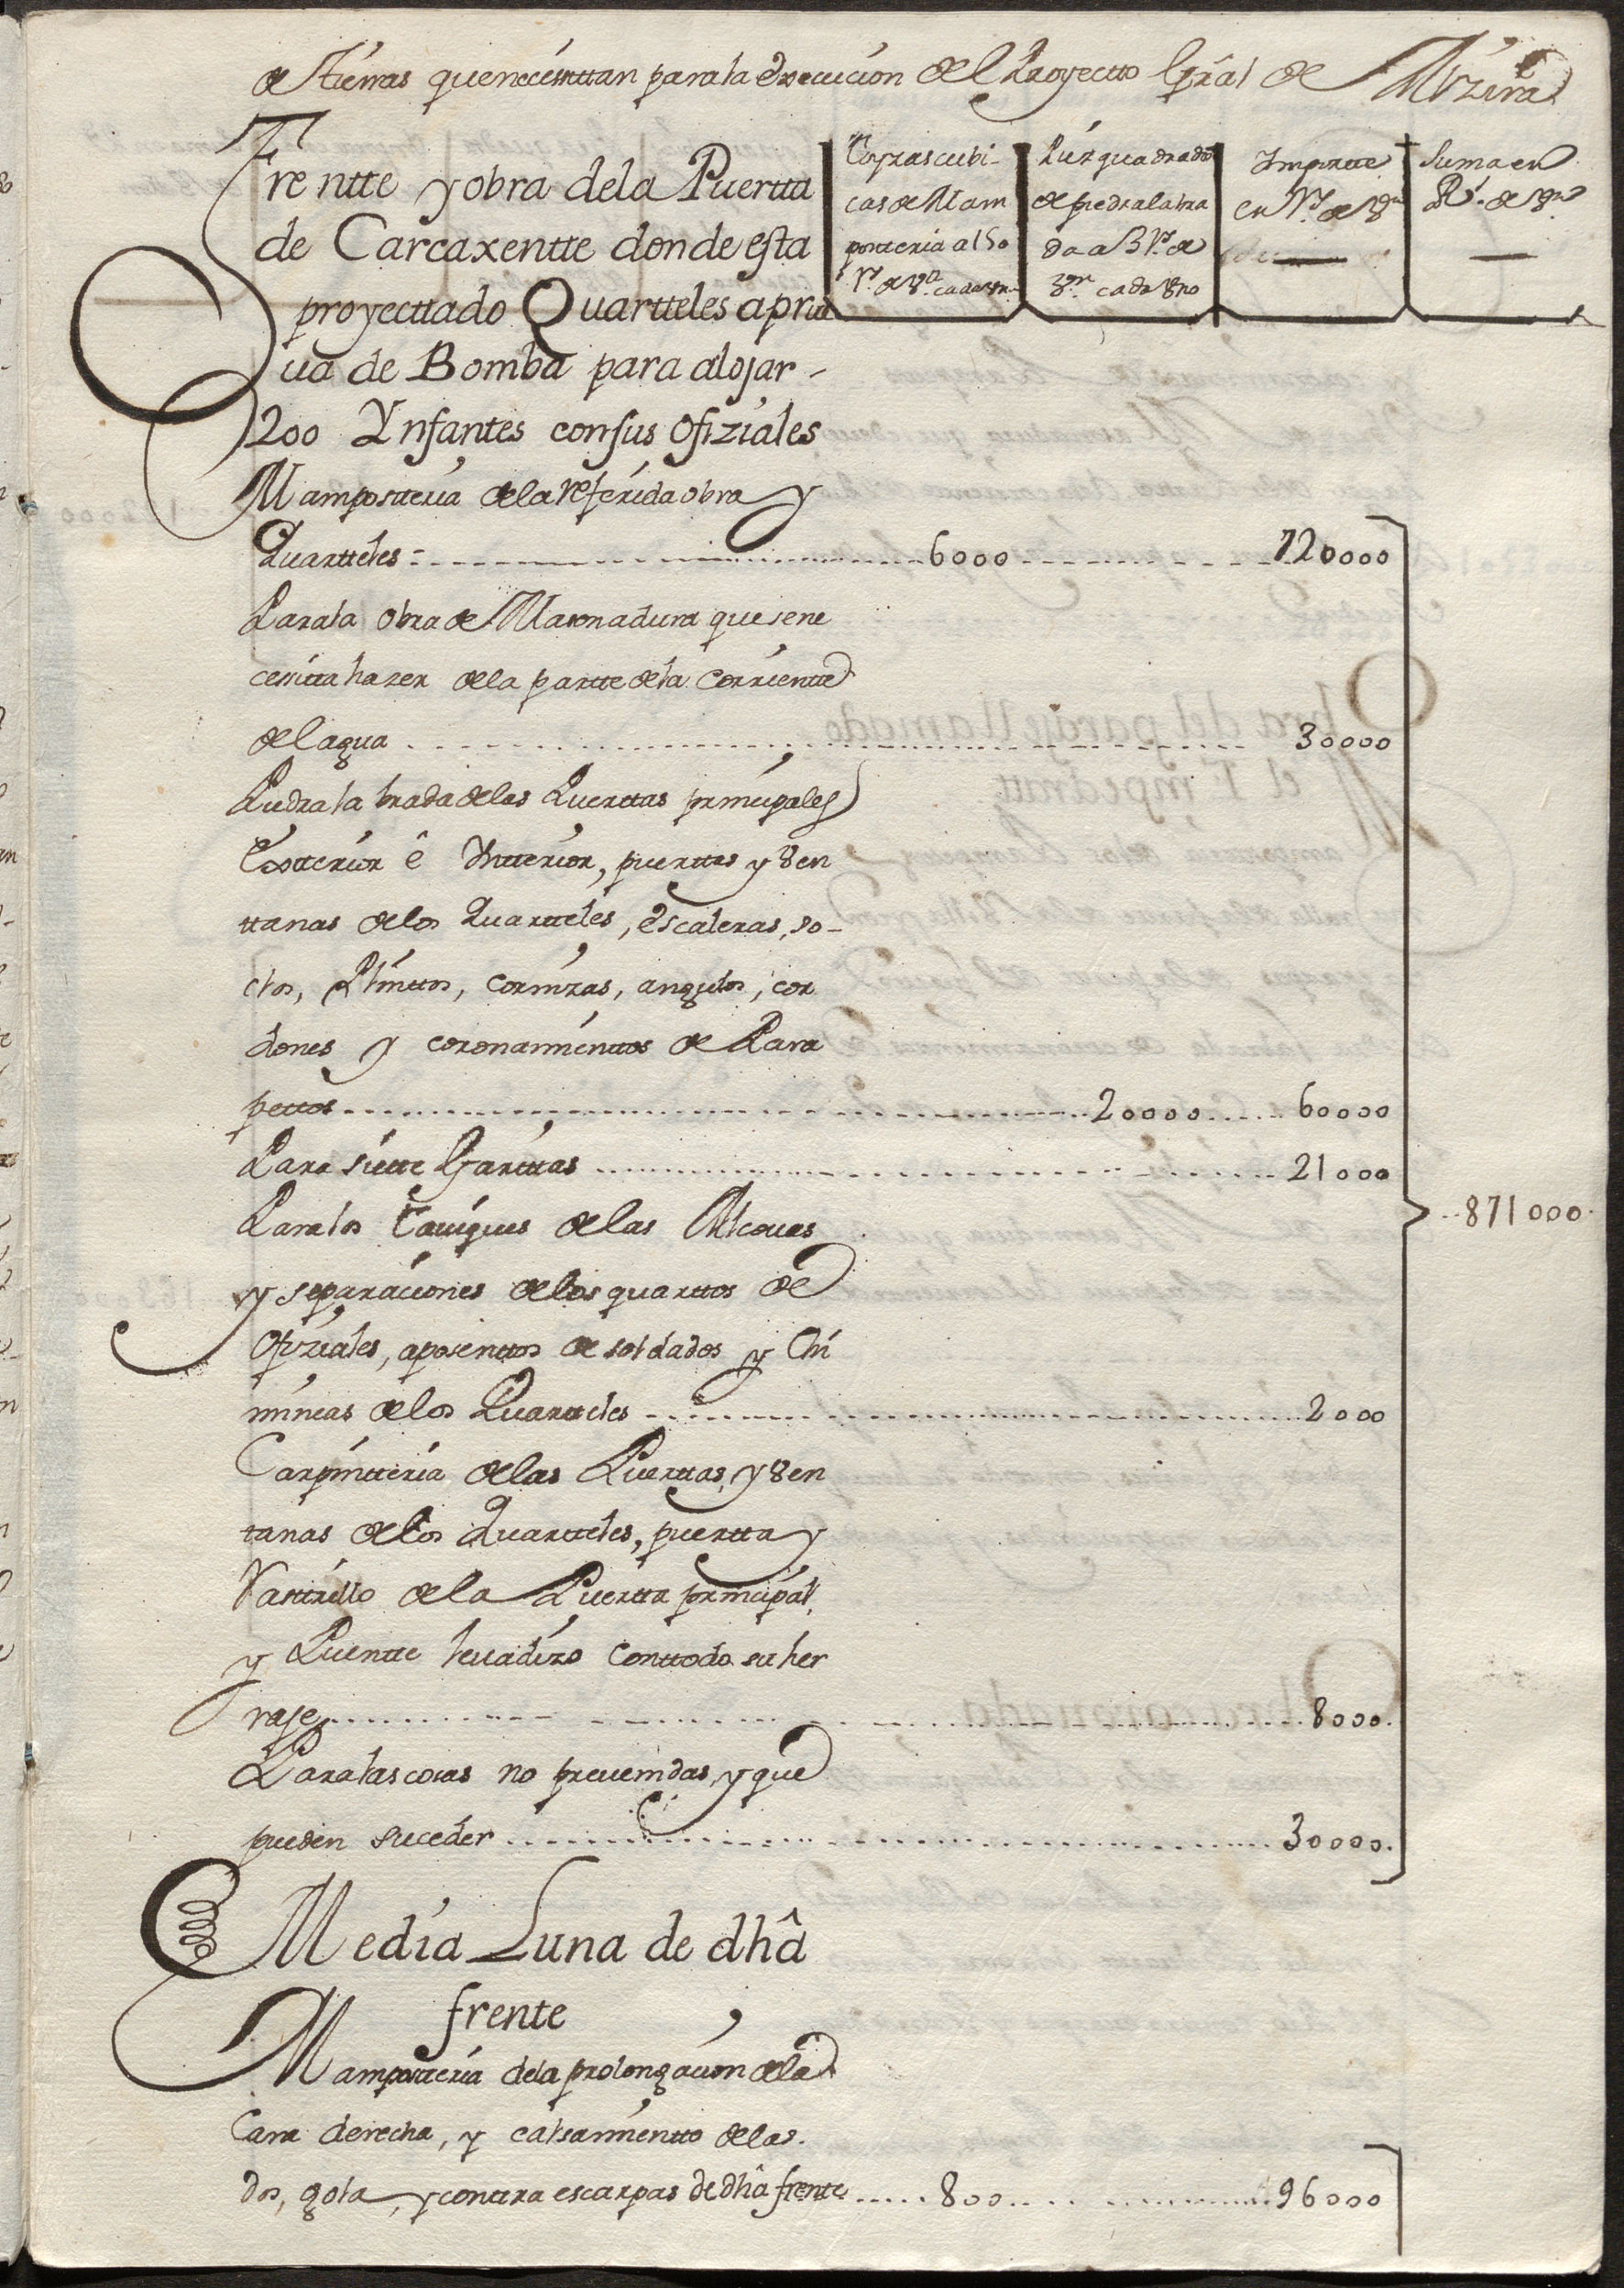 de tierras que necesittan para la execucion del Proyectto Gral de Alzira
Frentte y obra de la Puertta
de Carcaxentte donde esta
proyecttado Quartteles a prue
va de Bomba para alojar
200 Ynfantes con sus ofiziales
Toyzas cubi-
cas de Mam
postteria a 150
Rs. de Vn. cada una
Pies quadrados
de piedra labra
da a 3 Rs. de
Vn. cada uno
Importte
en Rs. de Vn.
Suma en
Rs. de Vn.
Mampostteria de la referida obra y
Quartteles 6000 720000
Para la obra de Maconadura que se ne
cesitta hazer de la partte de la Corrientte
del agua 30000
Piedra labrada de las Puerttas principales
Extterior ê Ynterior, puerttas y ven
ttanas de los Quartteles, escaleras, so-
clos, Plinttos, cornizas, angulos, cor
dones y coronamienttos de Para
pettos 20000 60000
Para siette Garittas 21000
Para los tauiques de las Alcouas
y separaciones de los quarttos de
ofiziales, aposenttos de soldados y Chi
mineas de los Quartteles 2000
Carpintteria de las Puerttas, y ven
tanas de los Quartteles, puertta y
Rasttrillo de la Puertta principal,
y Puentte leuadizo con ttodo su her
raje 8000
Para las cosas no preuenidas, y que
pueden suceder 30000
871000
Media Luna de dhâ
frente
Mampostteria de la prolongacion de la
Cara derecha, y calsamientto de las
dos, gola, y conttra escarpas de dhâ frente 800 96000